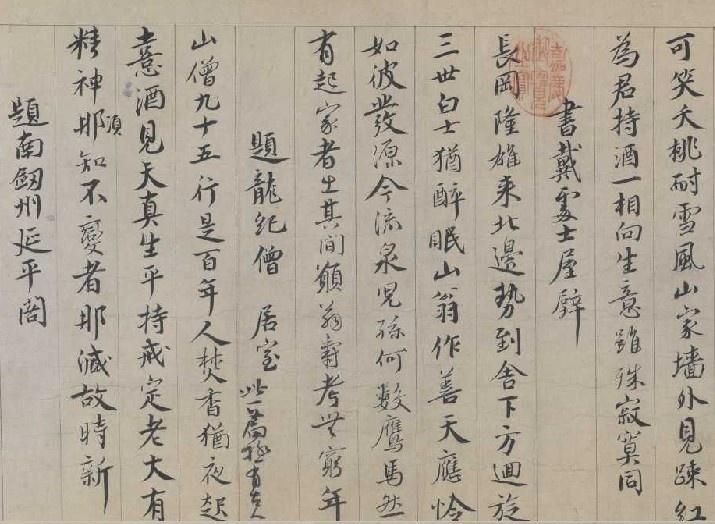 可笑夭桃耐雪風山家墻外見踈紅
為君持酒一相向生意雖殊寂寞同
書戴處士屋壁
長岡隆雄來北邊勢到舍下方迴旋
三世白士猶醉眠山翁作善天應怜
如彼發源今流泉兒孫何數鴈馬然
有起家者出其間願翁壽考無窮年
題龍紀僧居室 此一篇極有古人
山僧九十五行是百年人焚香猶夜起
憙酒見天真生平持戒定老大有
精神那須知不變者那減故時新
題南劔州延平閣